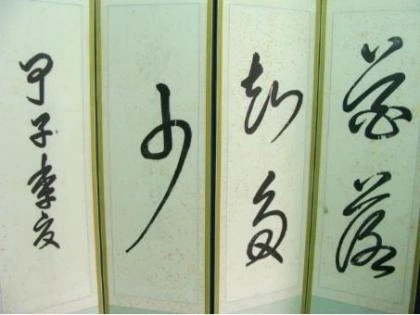 花落
知多
少
甲子季夏